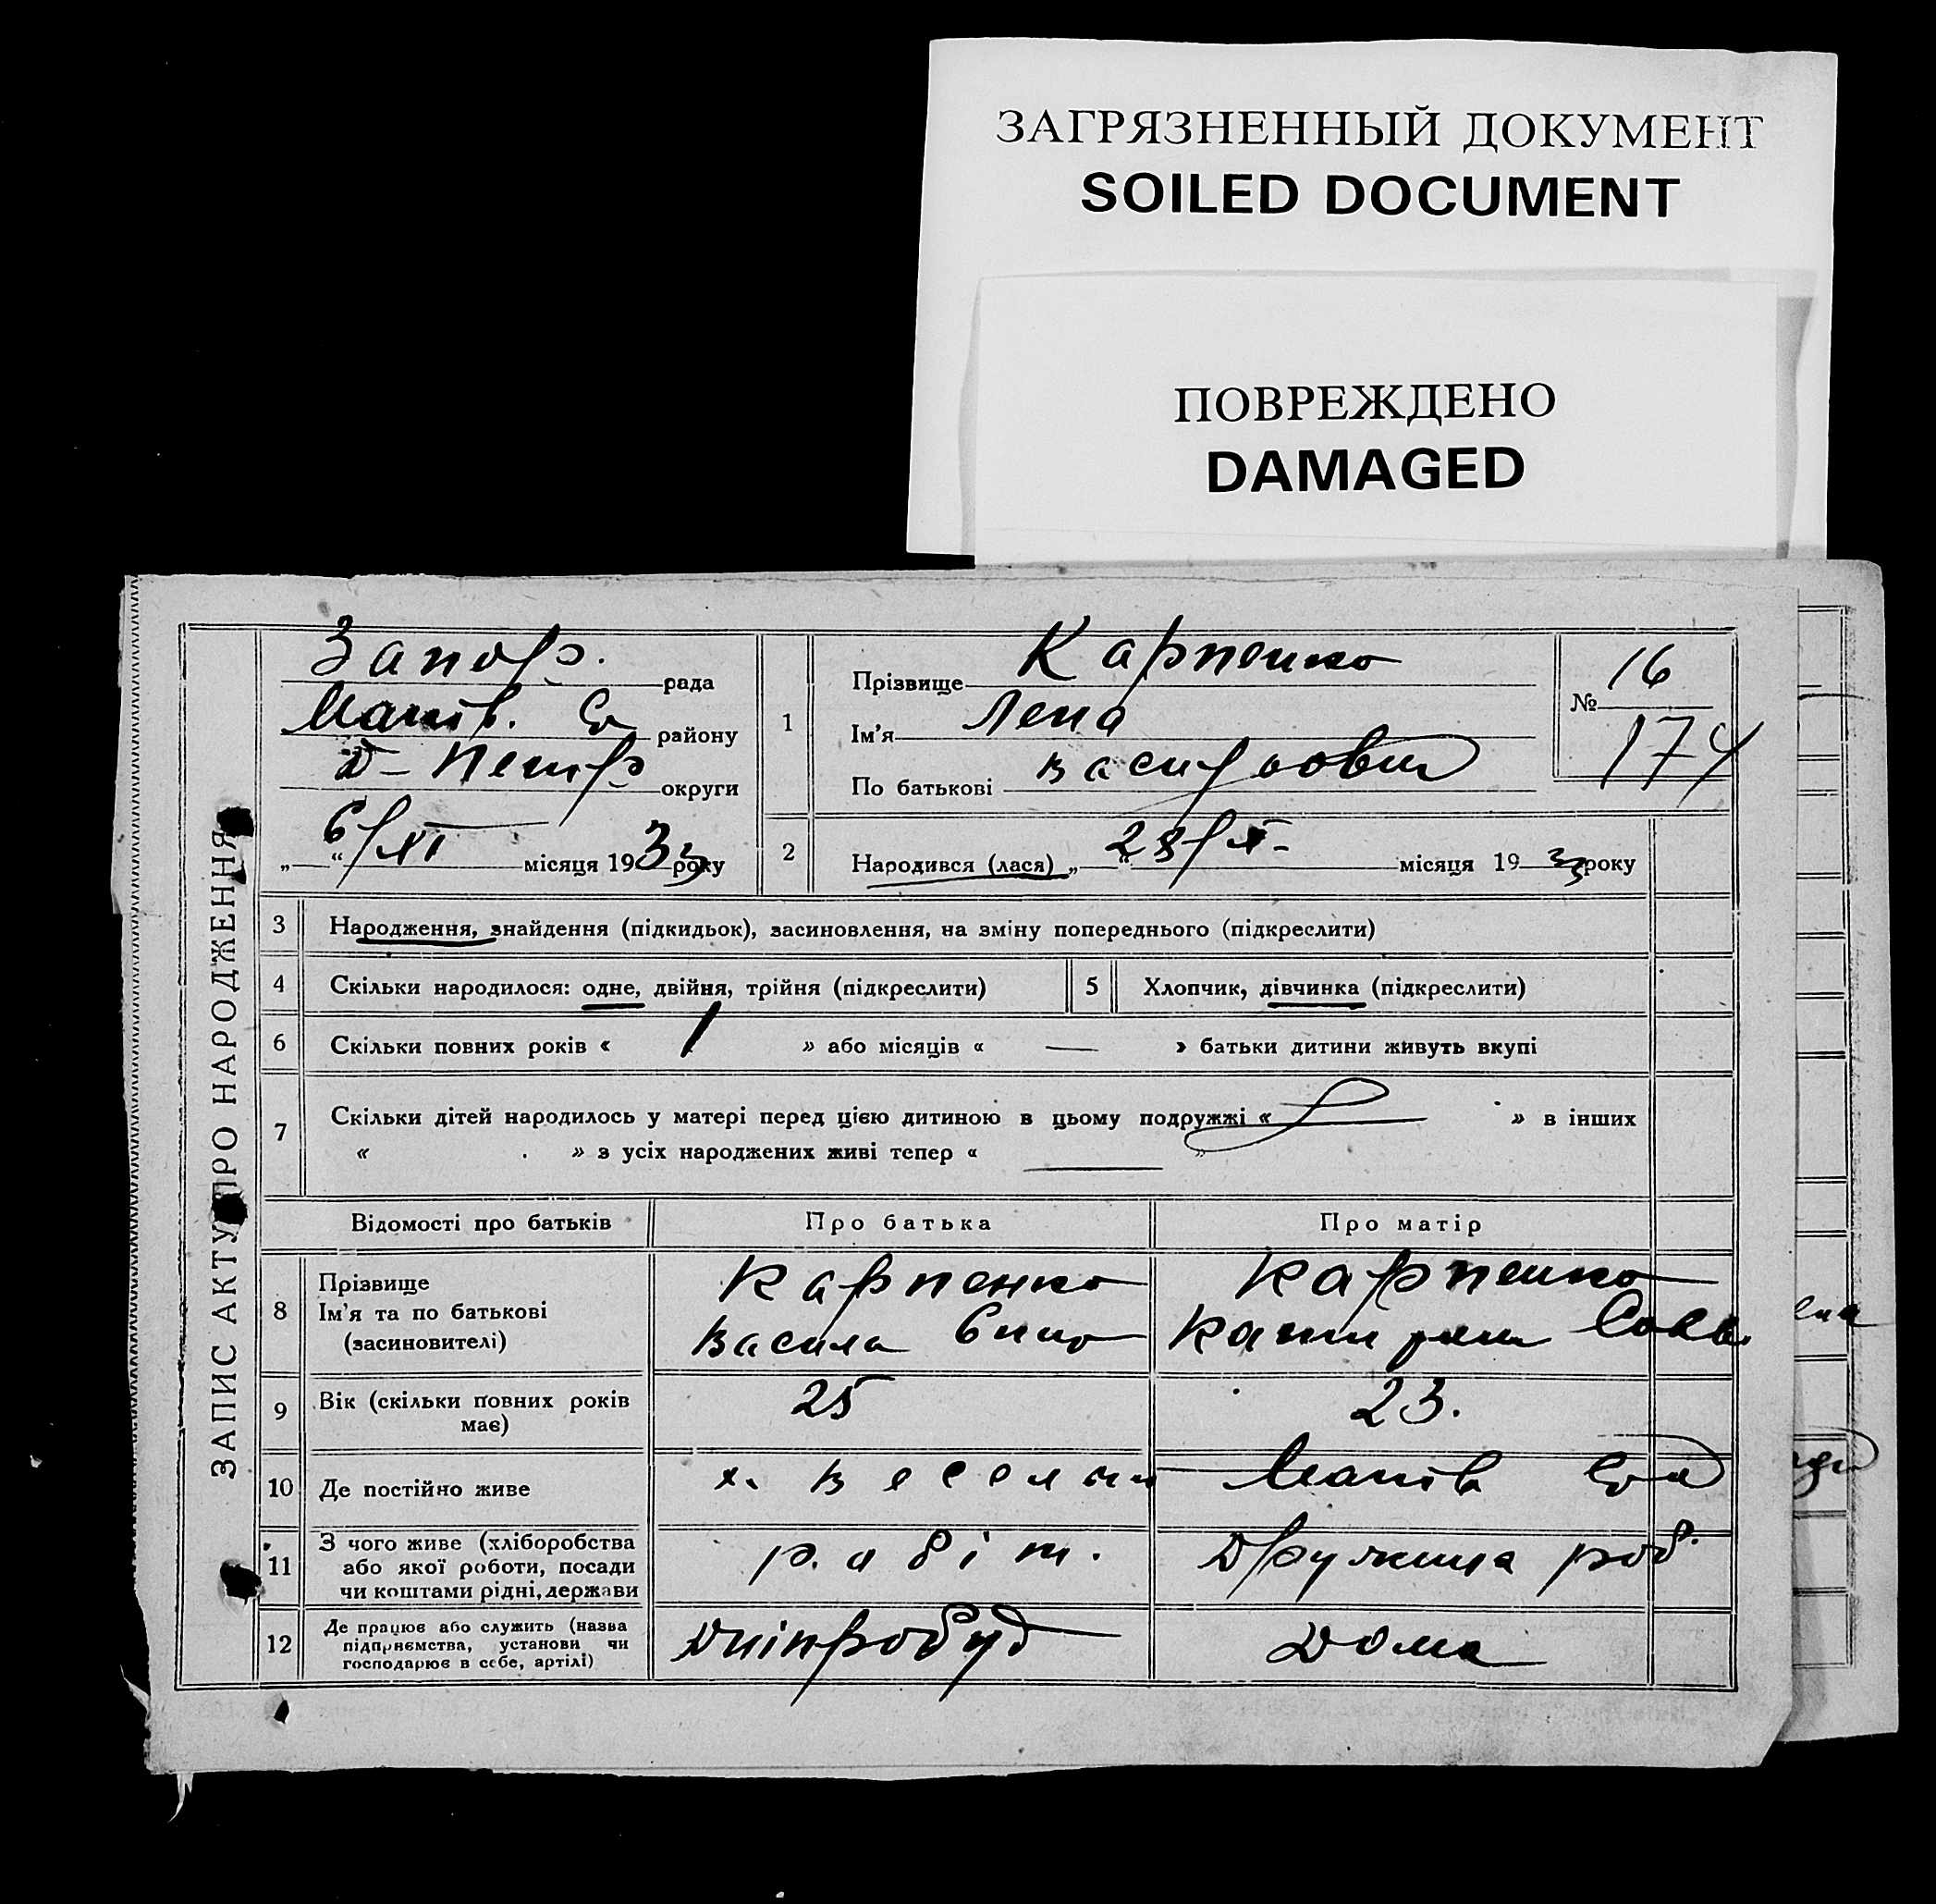 ЗАГРЯЗНЕННЫЙ ДОКУМЕНТ
SOILED DOCUMENT
ПОВРЕЖДЕНО
DAMAGED
ЗАПИС АКТУ ПРО НАРОДЖЕННЯ
Запор. рада
району
Д-Петр округи
„ 6/XI “ місяця 1933 року
1
Прізвище Карпенко
Ім'я Лена
По батькові
№ 16
174
2
Народився (лася) „ 28/X “ місяця 1933 року
3 Народження, знайдення (підкидьок), засиновлення, на зміну попереднього (підкреслити)
4 Скільки народилося: одне, двійня, трійня (підкреслити)
5 Хлопчик, дівчинка (підкреслити)
6 Скільки повних років « 1 » або місяців « — » батьки дитини живуть вкупі
7 Скільки дітей народилось у матері перед цією дитиною в цьому подружжі « » в інших
« » з усіх народжених живі тепер « — »
Відомості про батьків Про батька Про матір
8 Прізвище Карпенко Карпенко
Ім'я та по батькові
(засиновителі) Василь
9 Вік (скільки повних років 25 23.
має)
10 Де постійно живе х.
11 З чого живе (хліборобства
або якої роботи, посади робіт. Дружина роб.
чи коштами рідні, держави
12 Де працює або служить (назва
підприємства, установи чи Дніпробуд Дома
господарює в себе, артілі)